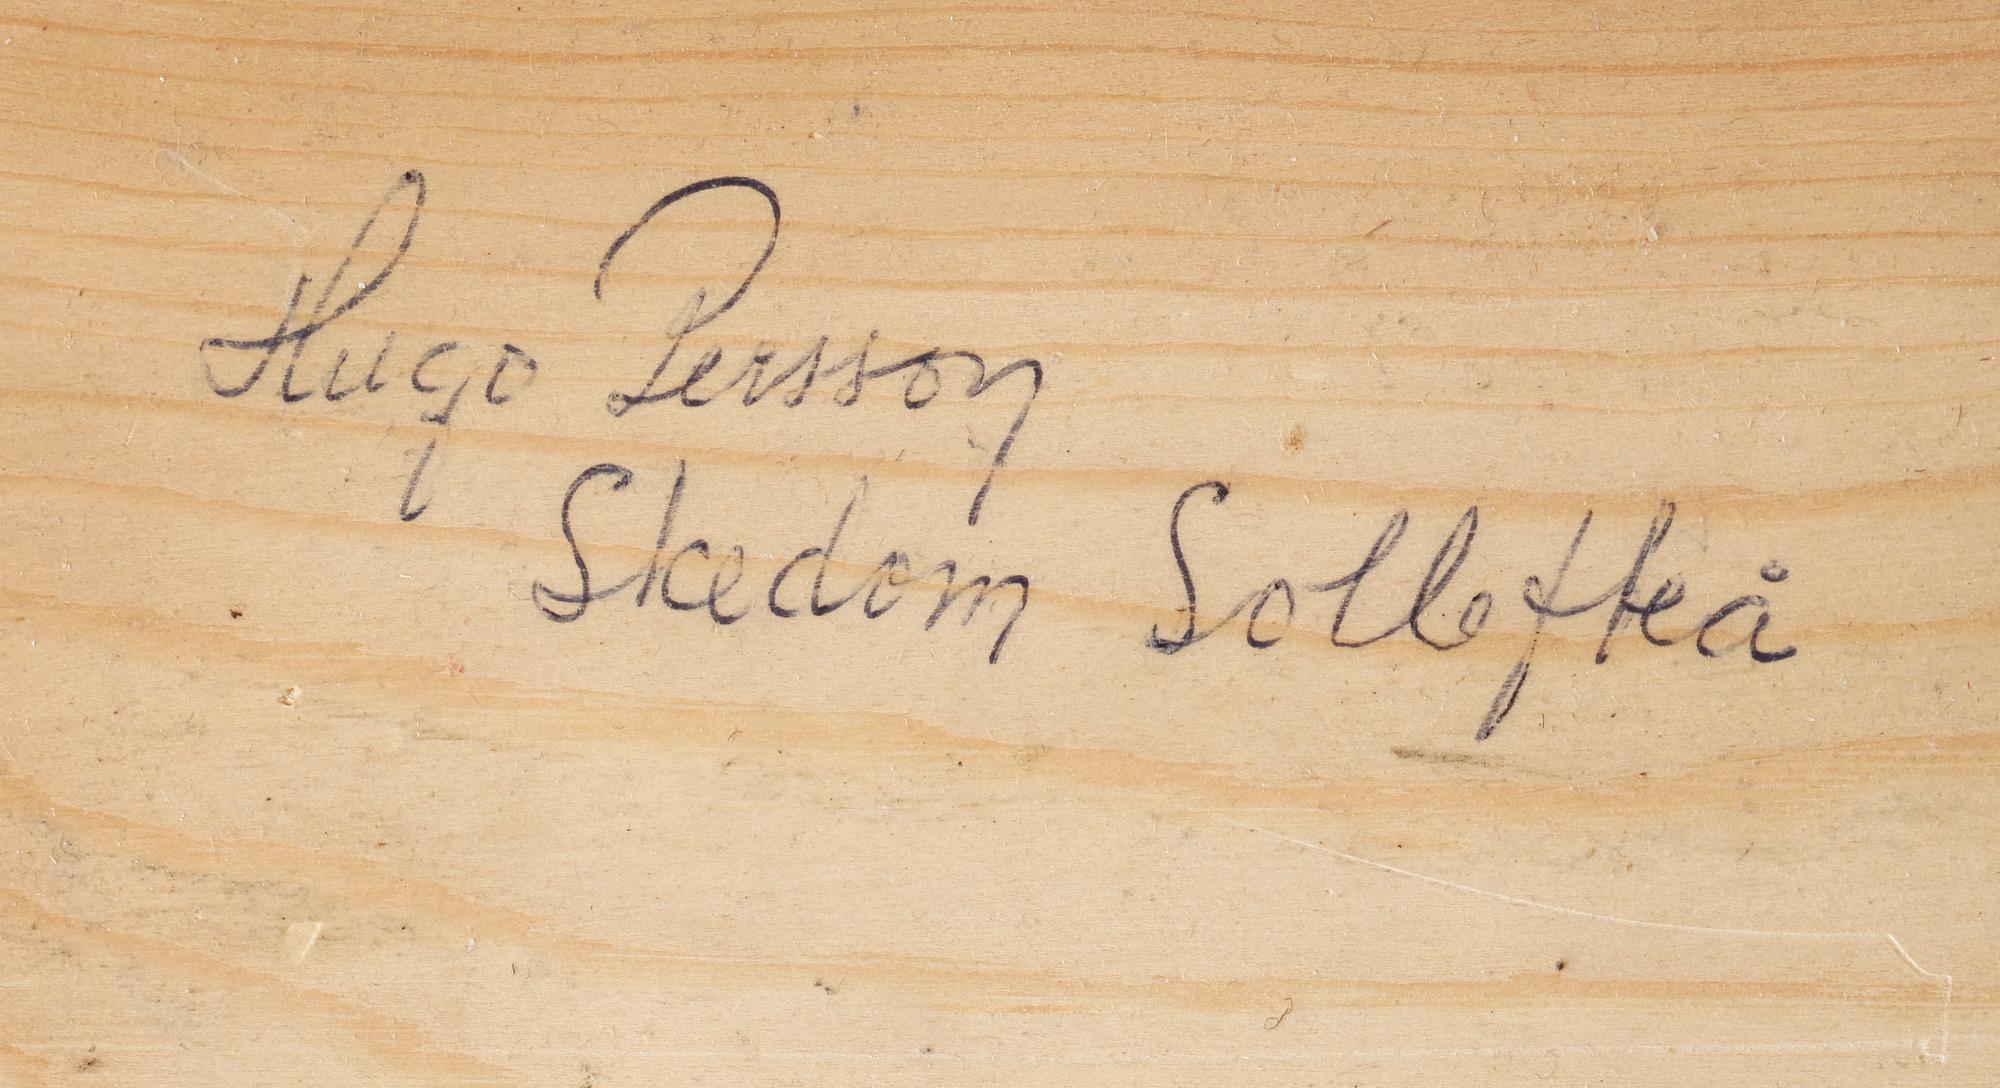 Hugo Persson
Skedom Sollefteå